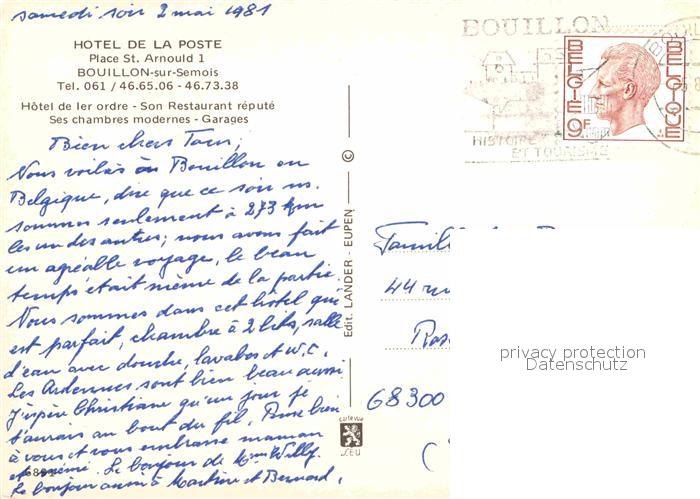 samedi soir 2 mai 1981
HOTEL DE LA POSTE
Place St. Arnould 1
BOUILLON-sur-Semois
Tel. 061 / 46.65.06 - 46.73.38
Hôtel de ler ordre - Son Restaurant réputé
Ses chambres modernes - Garages
Bien chers Tous,
Nous voilà à Bouillon en
Belgique, dire que ce soir ns.
sommes seulement à 273 km
les uns des autres; nous avons fait
un agréable voyage, le beau
temps était même de la partie.
Nous sommes dans cet hôtel qui
est parfait, chambre à 2 lits, salle
d'eau avec douche, lavabos et W.C.
Les Ardennes sont bien beau aussi
J'espère Christiane qu'un jour je
t'aurais au bout du fil. Pense bien
à vous et vous embrasse maman
et mémé. Le bonjour de Mme Willy.
Le bonjour aussi à Martine et Bernard.
6894
©
Edit. LANDER - EUPEN
carte vue
LEU
BOUILLON
HISTOIRE
ET TOURISME
BELGIE 9F BELGIQUE
Famill
44 ru
Ros
68300
(
privacy protection
Datenschutz